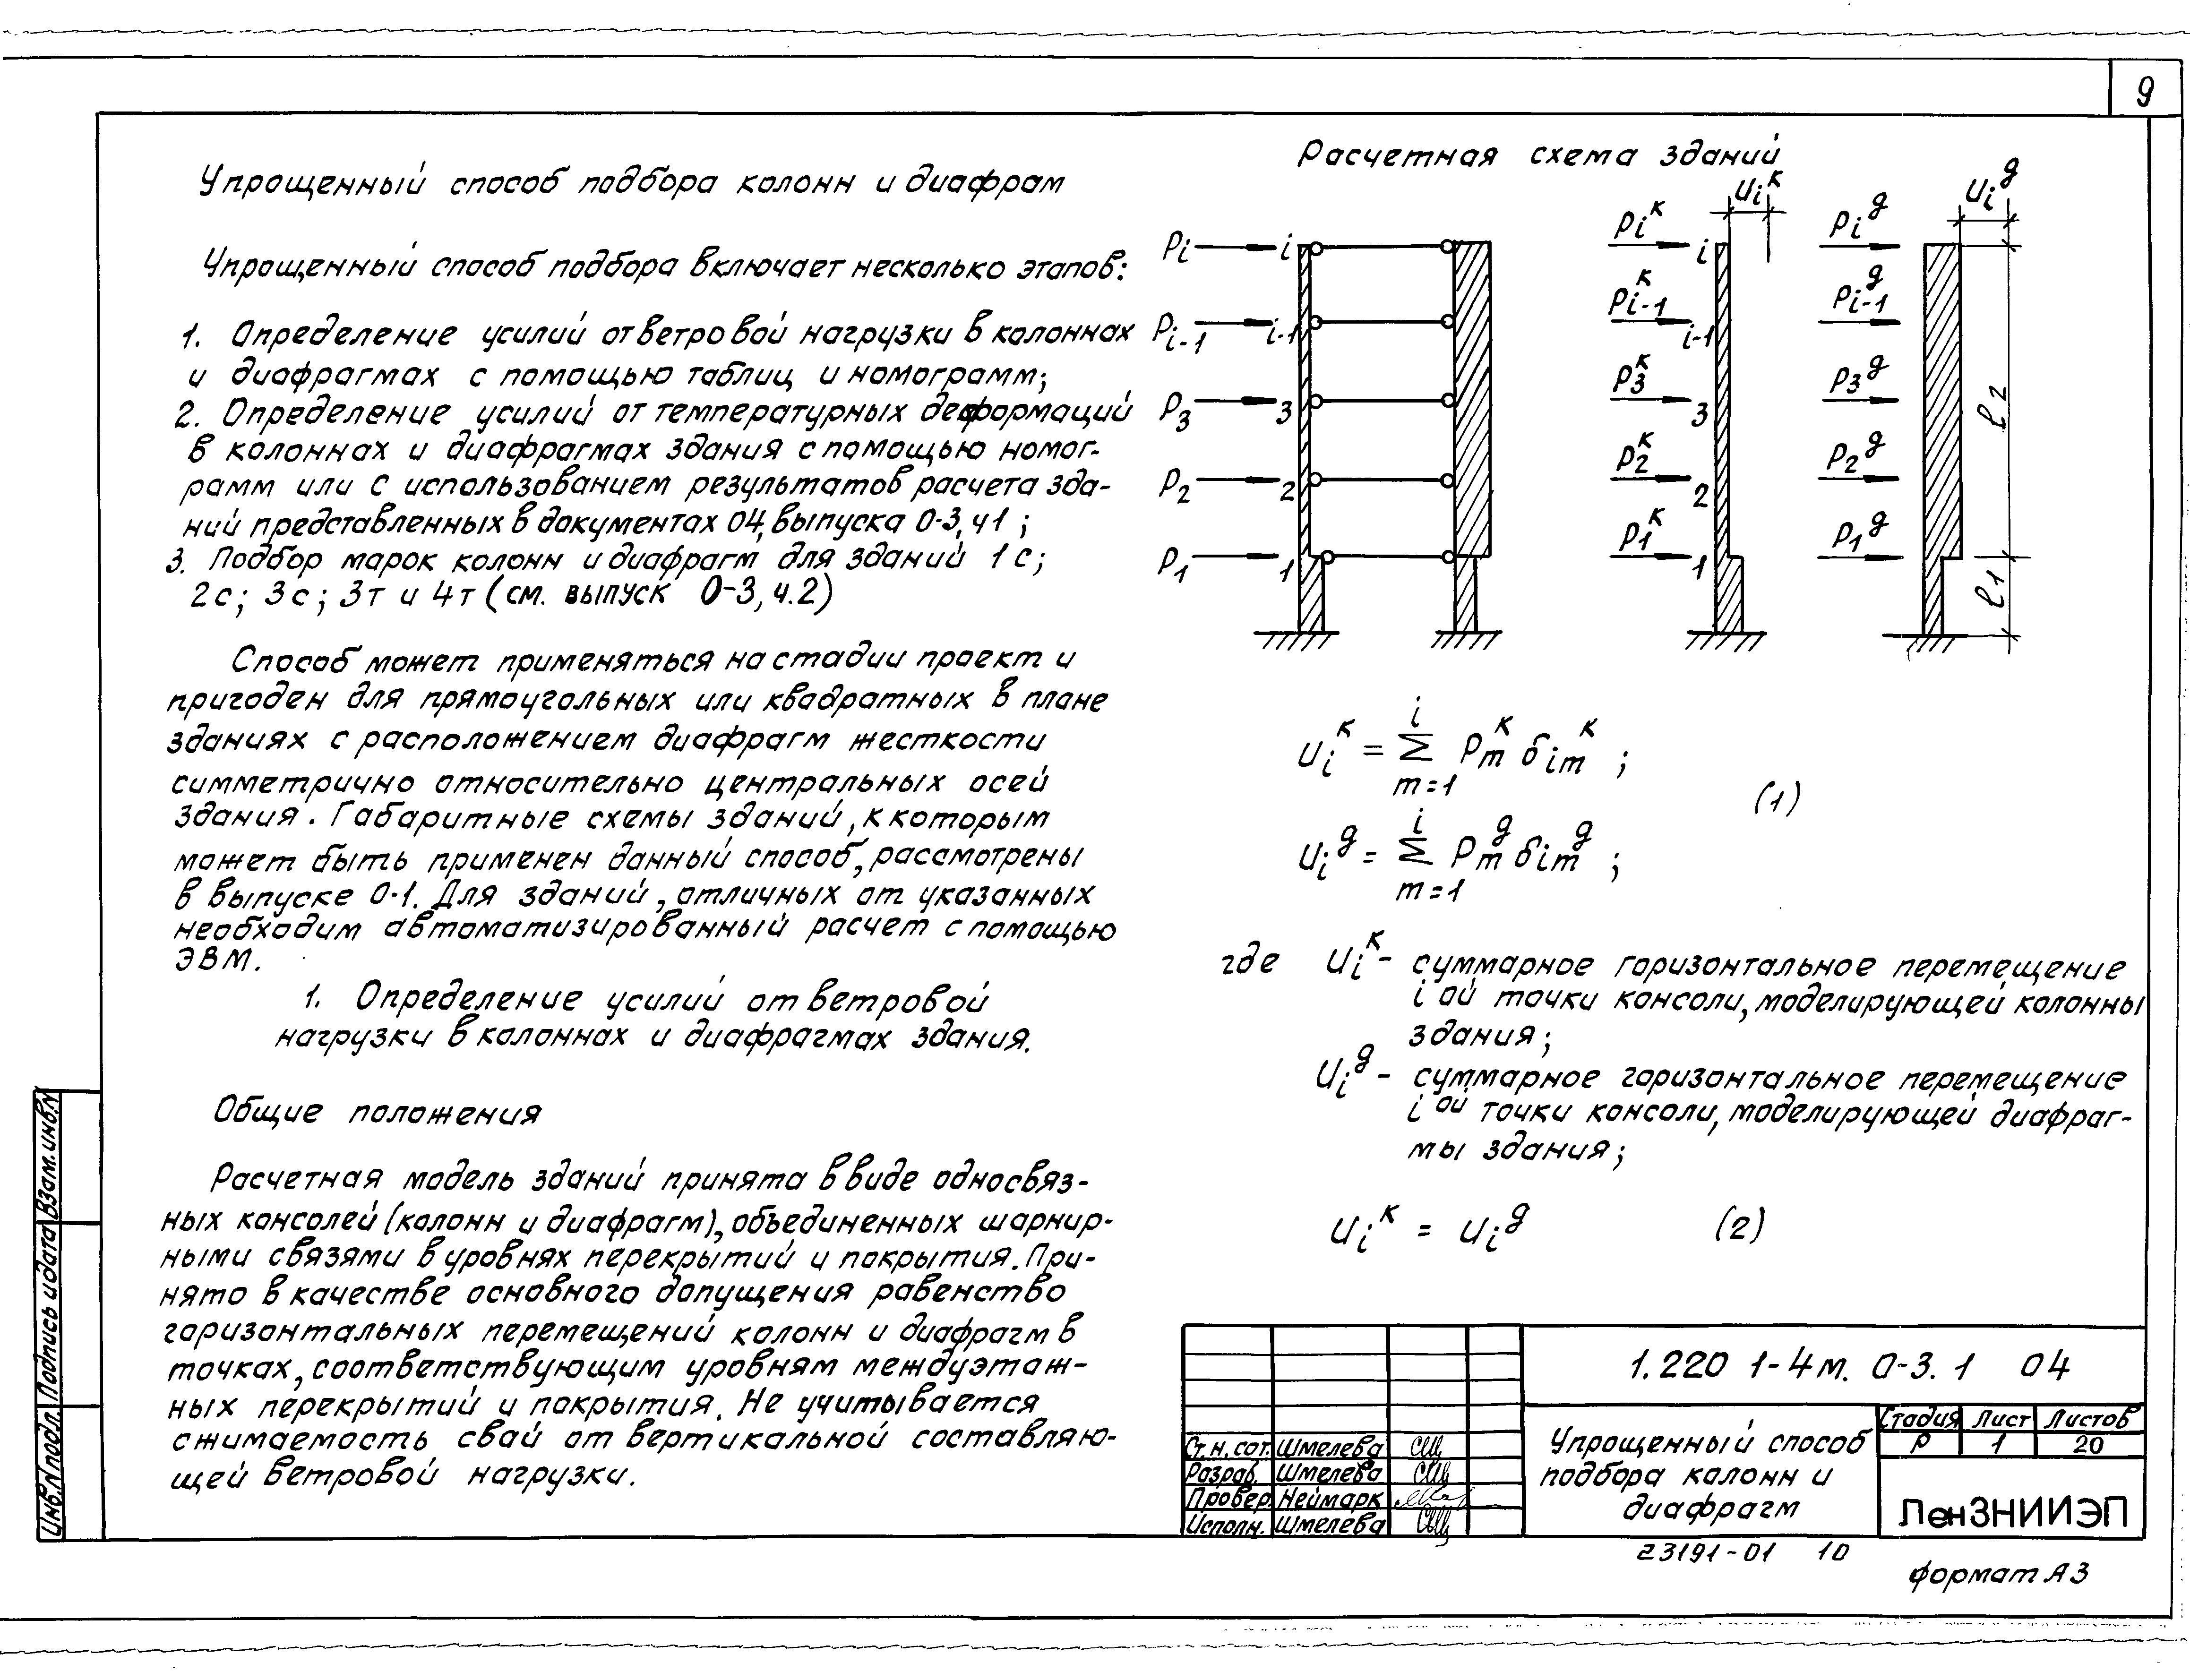 9
Упрощенный способ подбора колонн и диафрам
Упрощенный способ подбора включает несколько этапов:
1. Определение усилий от ветровой нагрузки в колоннах
и диафрагмах с помощью таблиц и номограмм;
2. Определение усилий от температурных деформаций
в колоннах и диафрагмах здания с помощью номог-
рамм или с использованием результатов расчета зда-
ний представленных в документах 04, выпуска 0-3, ч1;
3. Подбор марок колонн и диафрагм для зданий 1с;
2с; 3с; 3т и 4т (см. выпуск 0-3, ч.2)
Способ может применяться на стадии проект и
пригоден для прямоугольных или квадратных в плане
зданиях с расположением диафрагм жесткости
симметрично относительно центральных осей
здания. Габаритные схемы зданий, к которым
может быть применен данный способ, рассмотрены
в выпуске 0-1. Для зданий, отличных от указанных
необходим автоматизированный расчет с помощью
ЭВМ.
1. Определение усилий от ветровой
нагрузки в колоннах и диафрагмах здания.
Общие положения
Расчетная модель зданий принята в виде односвяз-
ных консолей (колонн и диафрагм), объединенных шарнир-
ными связями в уровнях перекрытий и покрытия. При-
нято в качестве основного допущения равенство
горизонтальных перемещений колонн и диафрагм в
точках, соответствующим уровням междуэтаж-
ных перекрытий и покрытия. Не учитывается
сжимаемость свай от вертикальной составляю-
щей ветровой нагрузки.
Расчетная схема зданий
Ui^к Ui^д
Pi i Pi^к i Pi^д
Pi-1 i-1 Pi-1^к i-1 Pi-1^д
P3 3 P3^к 3 P3^д
P2 2 P2^к 2 P2^д
P1 1 P1^к 1 P1^д
ℓ2
ℓ1
Ui^к = Σ(m=1, i) Pm^к δim^к ;
(1)
Ui^д = Σ(m=1, i) Pm^д δim^д ;
где Ui^к - суммарное горизонтальное перемещение
i ой точки консоли, моделирующей колонны
здания;
Ui^д - суммарное горизонтальное перемещение
i ой точки консоли, моделирующей диафраг-
мы здания;
Ui^к = Ui^д (2)
1.220 1-4м. 0-3. 1 04
Упрощенный способ
подбора колонн и
диафрагм
Стадия Лист Листов
Р 1 20
ЛенЗНИИЭП
Ст. н. сот. Шмелева
Разраб. Шмелева
Провер. Неймарк
Исполн. Шмелева
23191-01 10
формат А3
Взам. инв. N
Подпись и дата
Инв. N подл.